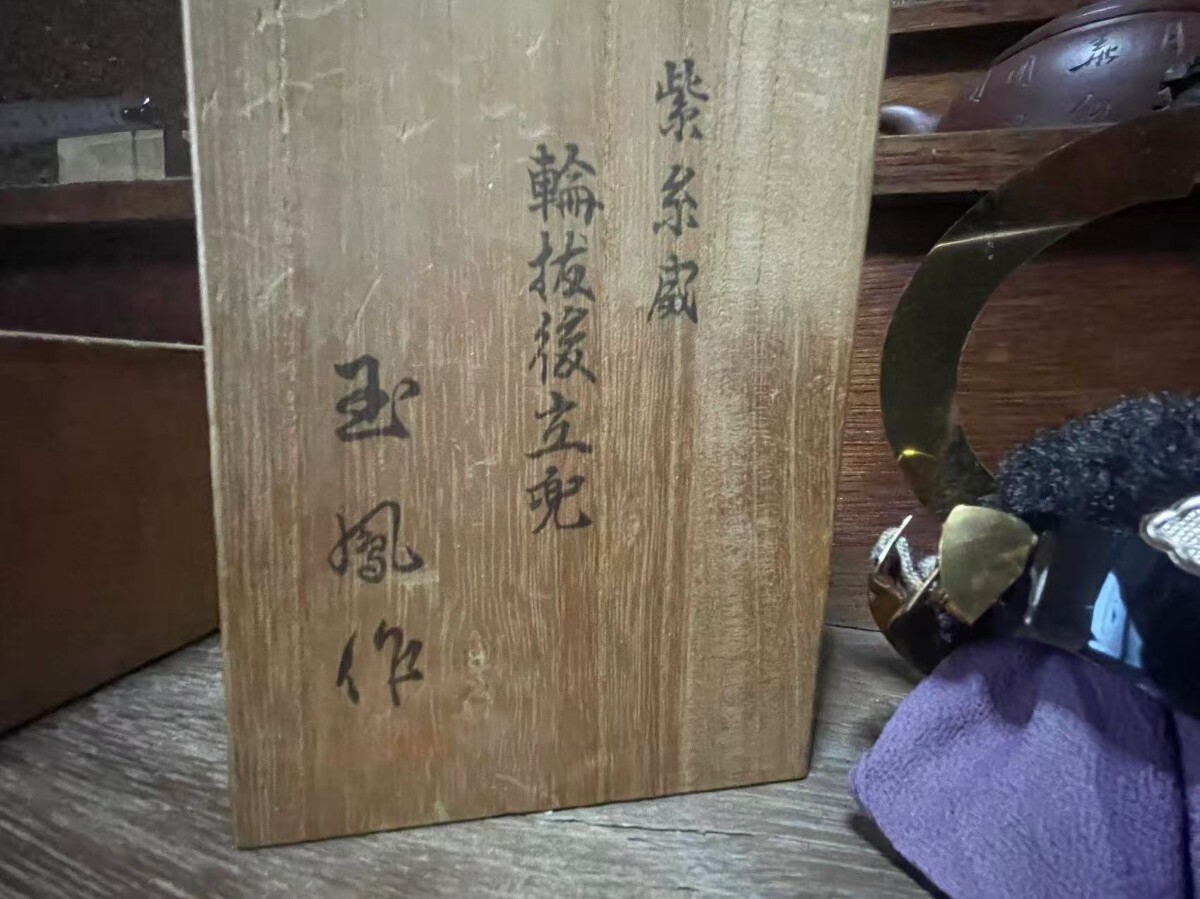 紫糸威
輪抜後立兜
玉鳳作